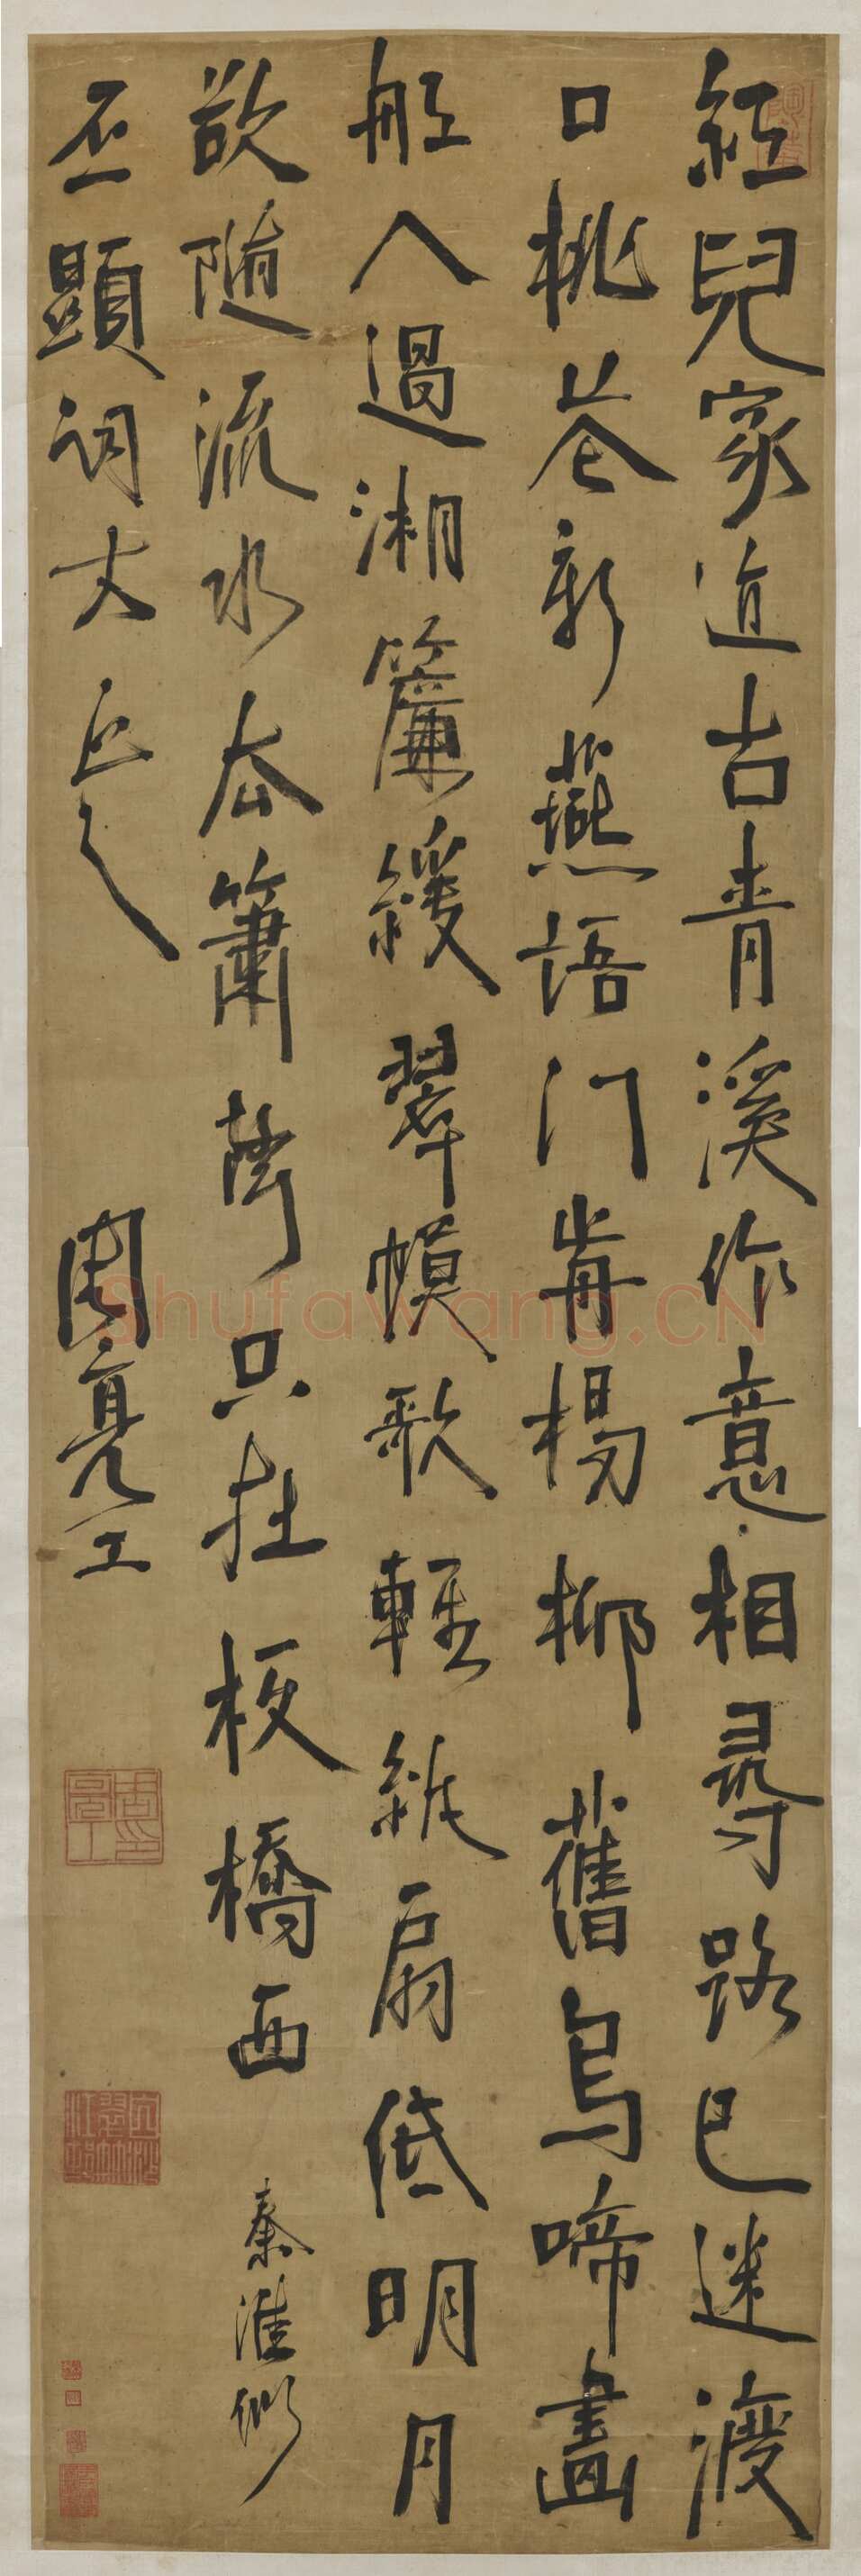 紅兒家近古青溪作意相尋路已迷渡
口桃花新燕語門前楊柳舊烏啼畫
船人過湘簾緩翠幙歌輕紈扇低明月
欲隨流水去簫聲只在板橋西 秦淮似
丕顯詞丈正之 周亮工
Shufawang.CN